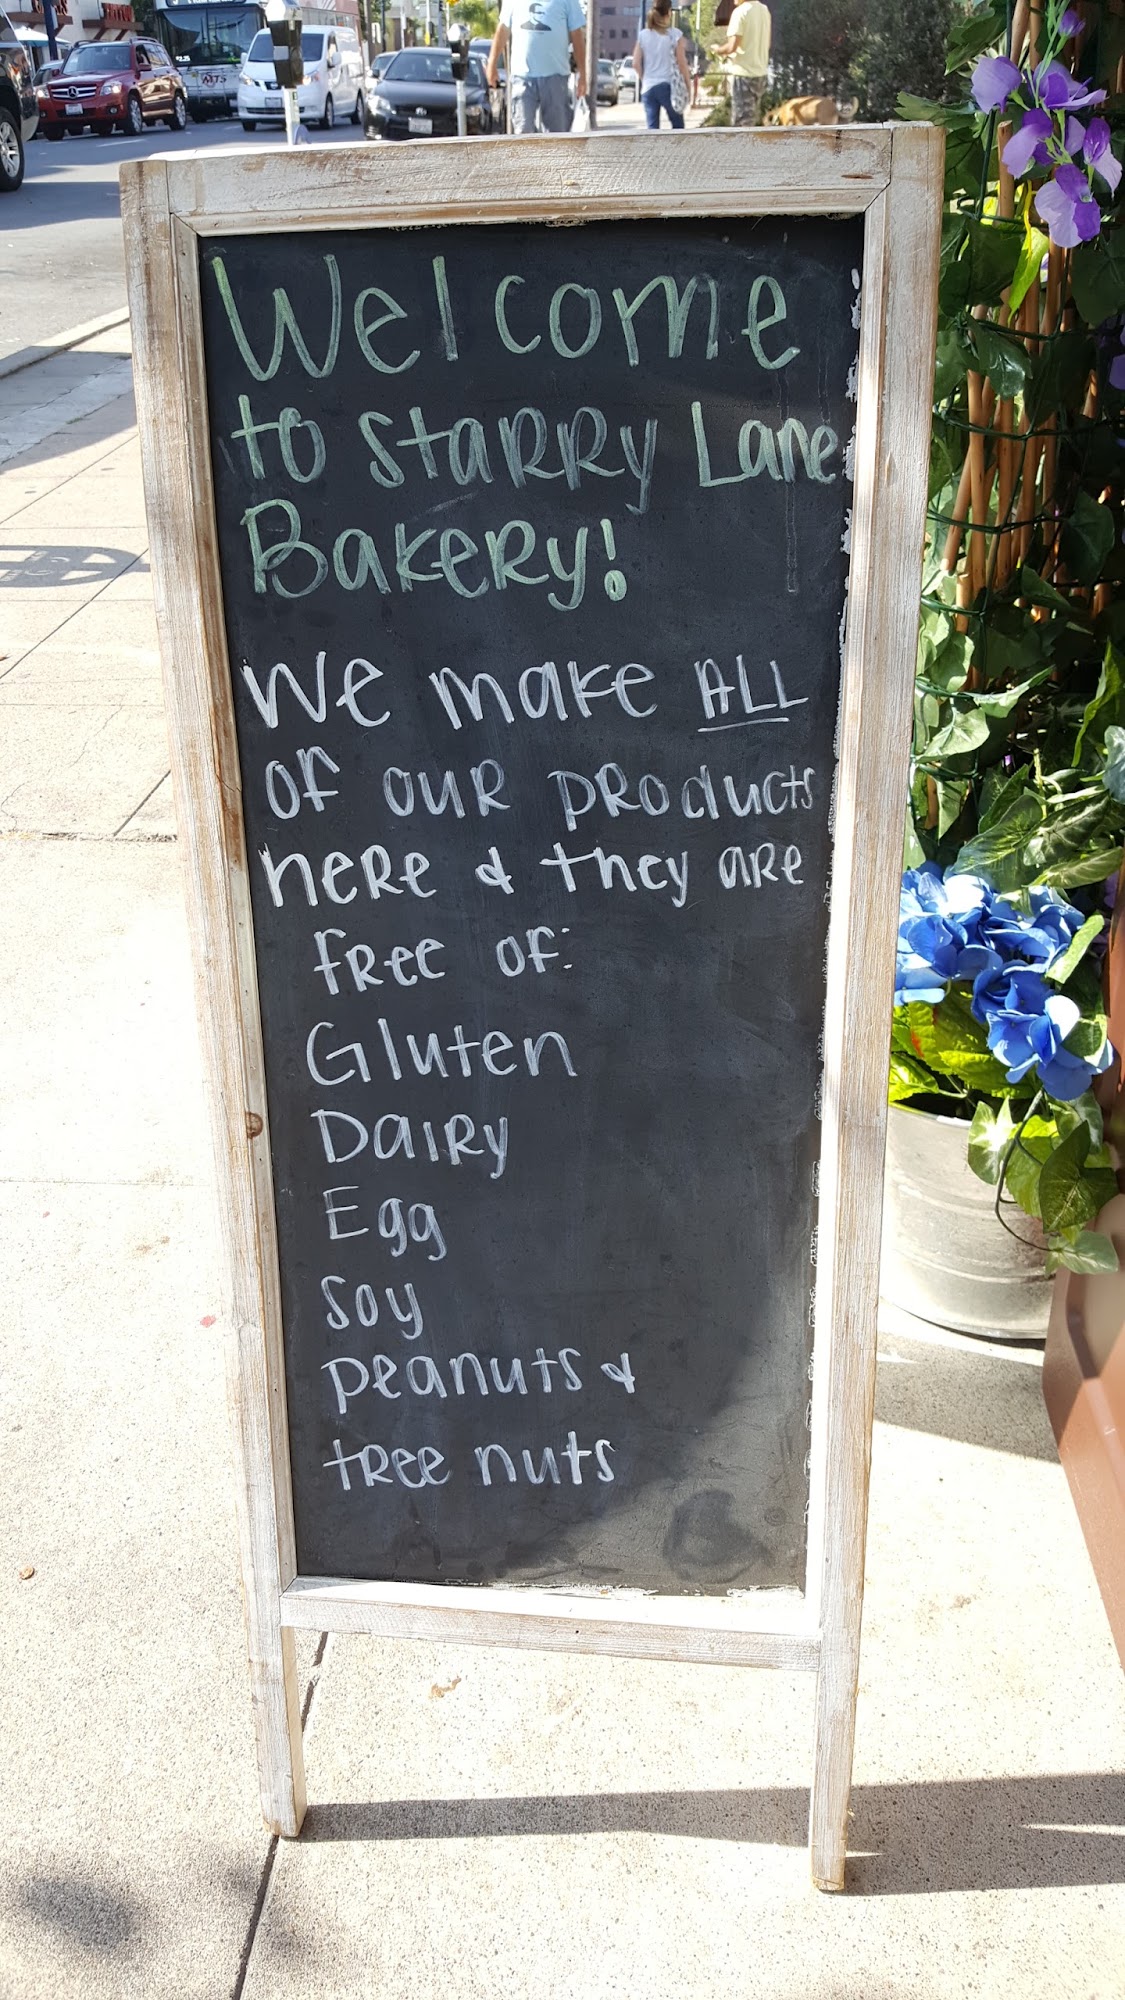 MTS
Welcome
to Starry Lane
Bakery!
We make ALL
of our products
here & they are
free of:
Gluten
Dairy
Egg
Soy
Peanuts &
tree nuts